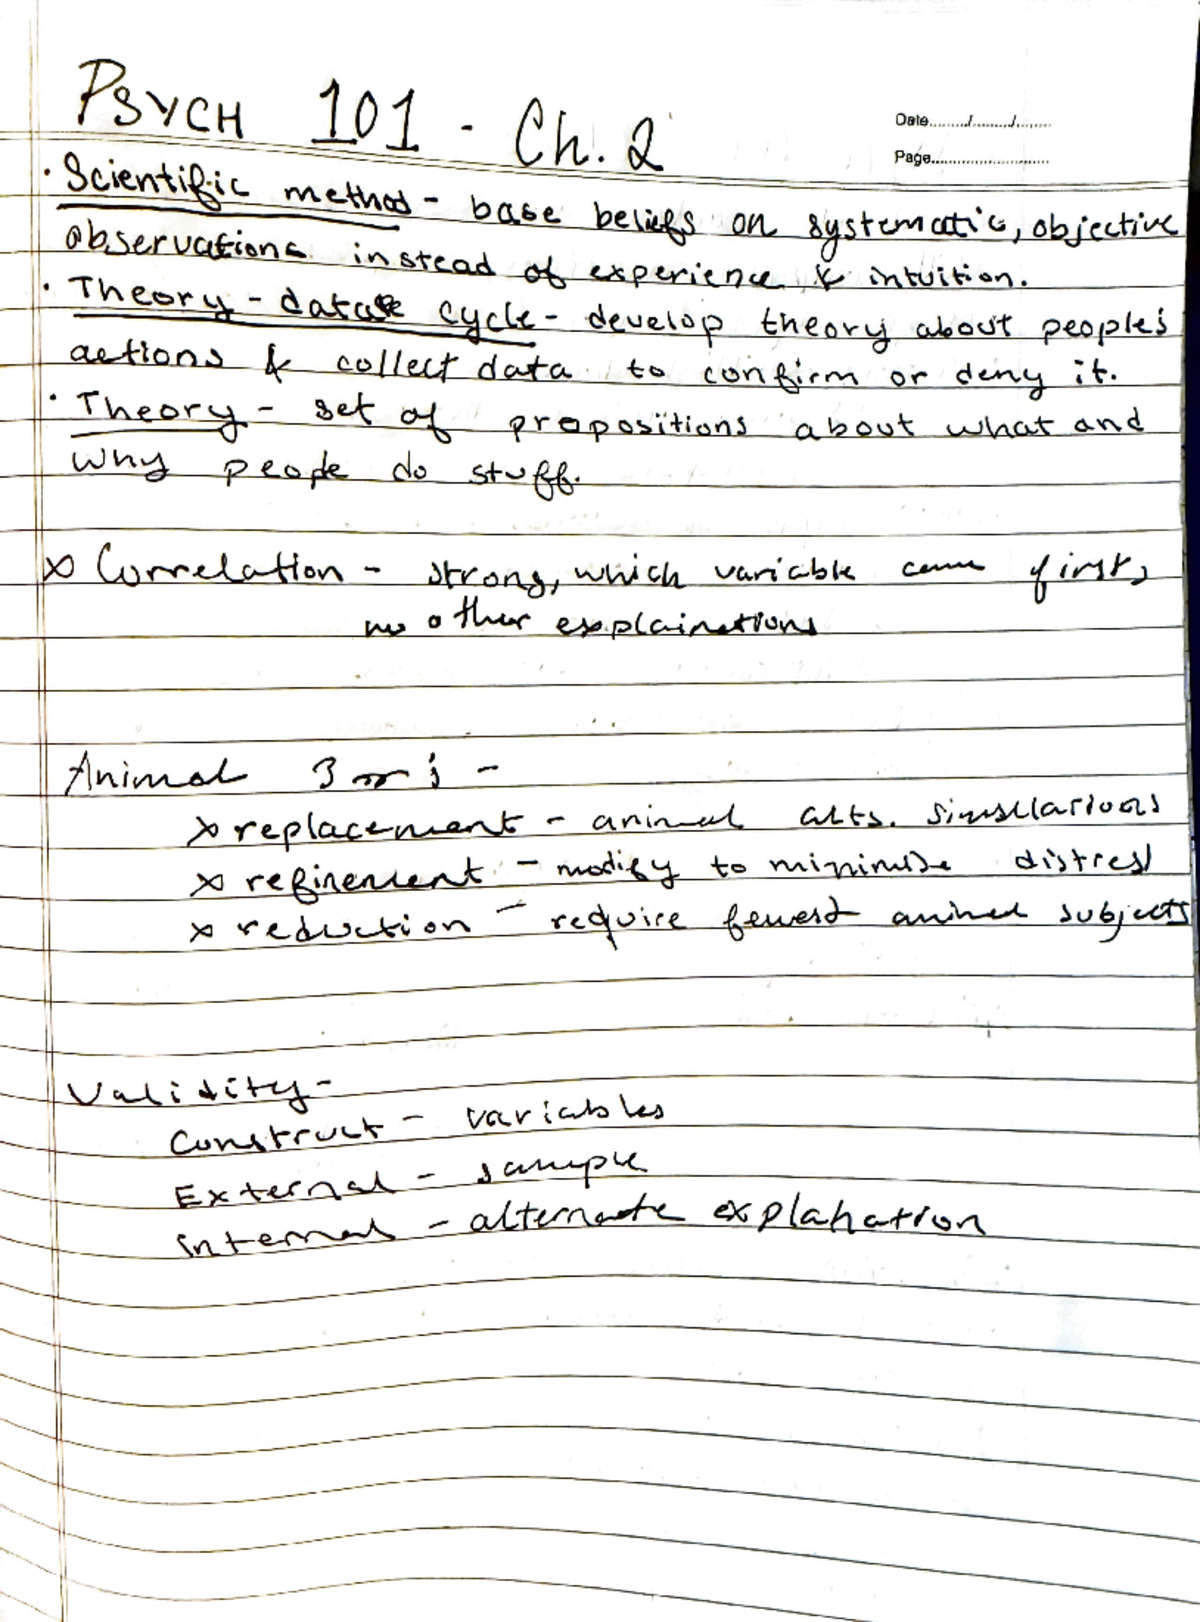 PSYCH 101 - Ch. 2
Date......../........./.........
Page..............................
· Scientific method - base beliefs on systematic, objective
observations instead of experience & intuition.
· Theory - data cycle - develop theory about people's
actions & collect data to confirm or deny it.
· Theory - set of propositions about what and
why people do stuff.
x Correlation - strong, which variable came first,
no other explainations
Animal 3 r's -
x replacement - animal alts.
x refinement - modify to minimise distress
x reduction - require fewest animal subjects
Validity -
Construct - variables
External - sample
internal - alternate explanation